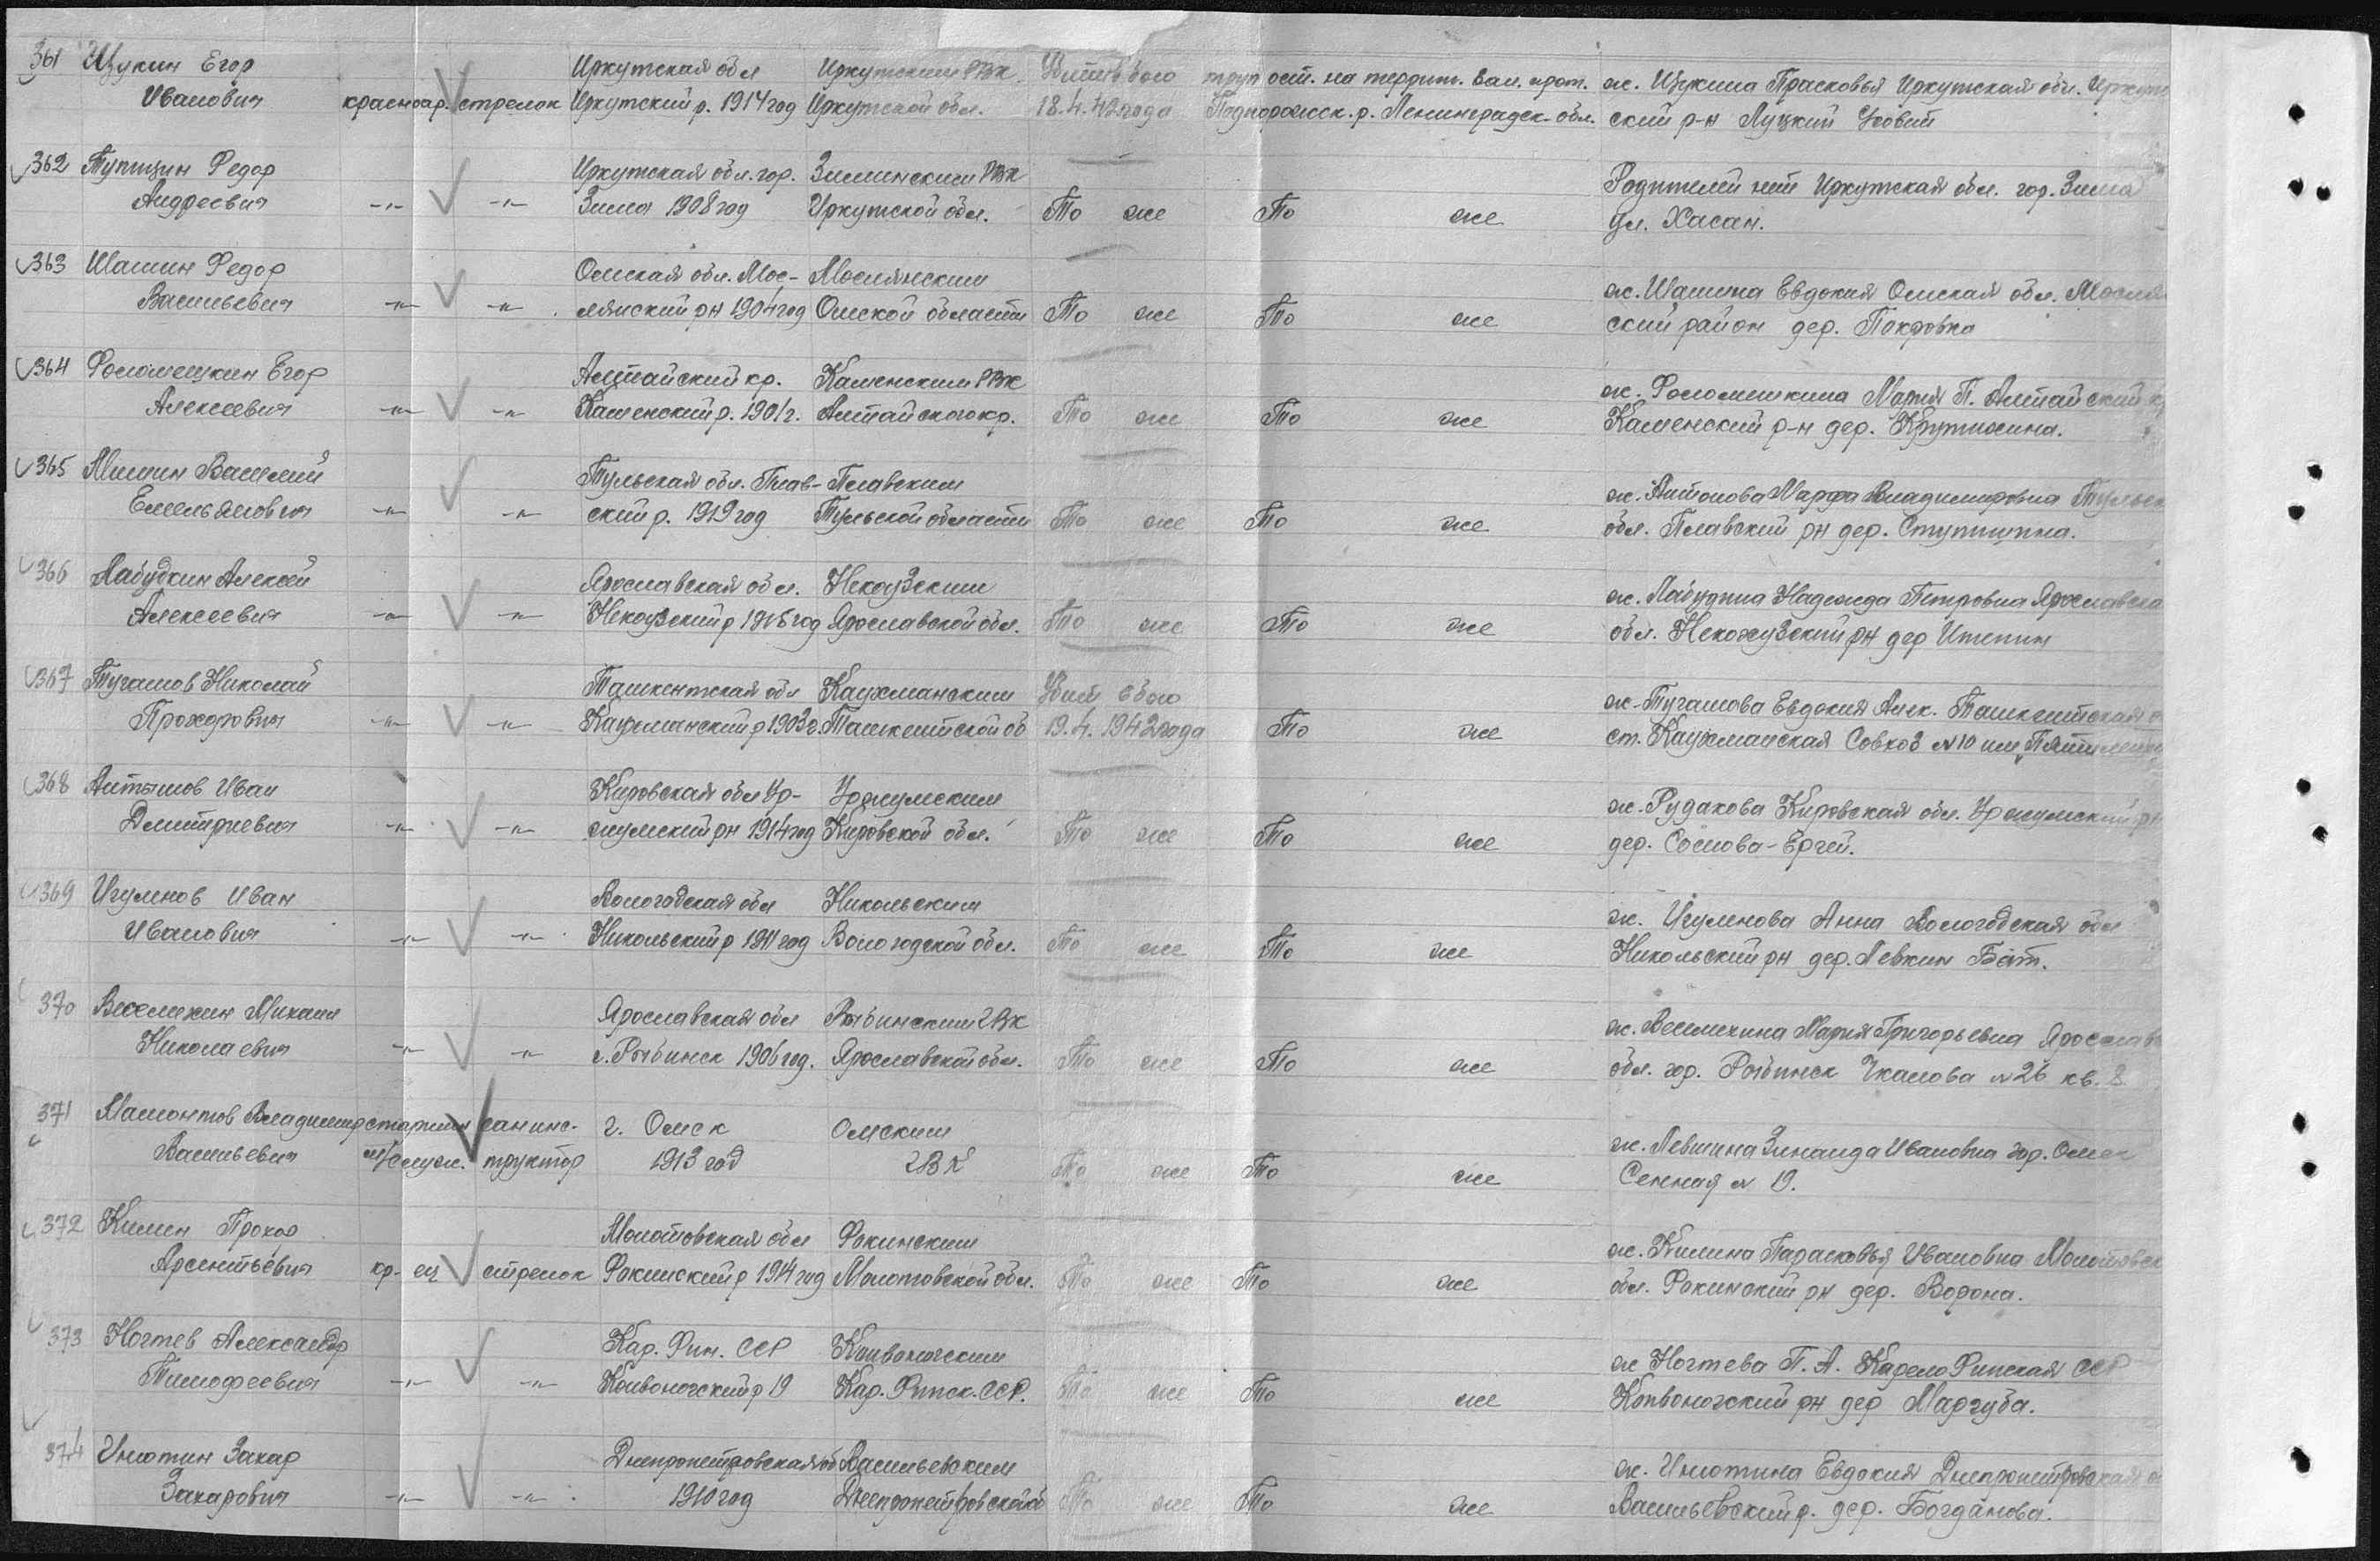 361 Щукин Егор Иркутская обл Иркутским РВК Убит в бою труп ост. на террит. зан. прот. ж. Щукина Прасковья Иркутская обл. Иркут
Иванович красноар. стрелок Иркутский р. 1914 год Иркутской обл. 18.4.42 года Подпорожск. р. Ленинградск. обл. ский р-н Луцкий
362 Тупицин Федор Иркутская обл. гор. Зиминским РВК Родителей нет Иркутская обл. гор. Зима
Андреевич -"- -"- Зима 1908 год Иркутской обл. То же То же ул. Хасан.
363 Шашин Федор Омская обл. Мос- Мослянским ж. Шашина Евдокия Омская обл. Мосля
Васильевич -"- -"- лянский рн 1904 год Омской области То же То же ский район дер. Покровка
364 Фоломешкин Егор Алтайский кр. Каменским РВК ж. Фоломешкина Мария П. Алтайский к
Алексеевич -"- -"- Каменский р. 1901 г. Алтайского кр. То же То же Каменский р-н дер. Крутихина.
365 Мишин Василий Тульская обл. Плав- Плавским ж. Антонова Марфа Владимировна Тульск
Емельянович -"- -"- ский р. 1919 год Тульской области То же То же обл. Плавский рн дер. Ступишина.
366 Лабудкин Алексей Ярославская обл. Некоузским ж. Лабудина Надежда Петровна Ярославска
Алексеевич -"- -"- Некоузский р 1915 год Ярославской обл. То же То же обл. Некожузский рн дер
367 Тугашов Николай Ташкентская обл Кауxманским Убит в бою ж. Тугашова Евдокия Алек. Ташкентская о
Прохорович -"- -"- Кауxманский р 1903 г. Ташкентской об 19.4.1942 года То же ст. Кауxманская Совхоз №10 им. Пятилетки
368 Антышов Иван Кировская обл Ур- Уржумским ж. Рудакова Кировская обл. Уржумский рн
Дмитриевич -"- -"- жумский рн 1914 год Кировской обл. То же То же дер. Соснова-Ергей.
369 Игумнов Иван Вологодская обл Никольским ж. Игумнова Анна Вологодская обл
Иванович -"- -"- Никольский р 1911 год Вологодской обл. То же То же Никольский рн дер. Левкин Бат.
370 Веселихин Михаил Ярославская обл Рыбинским ГВК ж. Веселихина Мария Григорьевна Ярослав
Николаевич -"- -"- г. Рыбинск 1906 год. Ярославской обл. То же То же обл. гор. Рыбинск Чкалова №26 кв. 8
371 Мамонтов Владимир старшин санинс- г. Омск Омским ж. Левшина Зинаида Ивановна гор. Омск
Васильевич м/служ. труктор 1913 год ГВК То же То же Сенная № 19.
372 Килин Прохор Молотовская обл Фокинским ж. Килина Парасковья Ивановна Молотовск
Арсентьевич кр-ец стрелок Фокинский р 1914 год Молотовской обл. То же То же обл. Фокинский рн дер. Ворона.
373 Ногтев Александр Кар. Фин. ССР Коивоногским ж Ногтева П. А. Карело Финская ССР
Тимофеевич -"- -"- Коивоногский р 19 Кар. Финск. ССР. То же То же Коивоногский рн дер Маргуба.
374 Инютин Захар Днепропетровская об Васильевским ж. Инютина Евдокия Днепропетровская о
Захарович -"- -"- 1910 год Днепропетровской об То же То же Васильевский р. дер. Богданова.